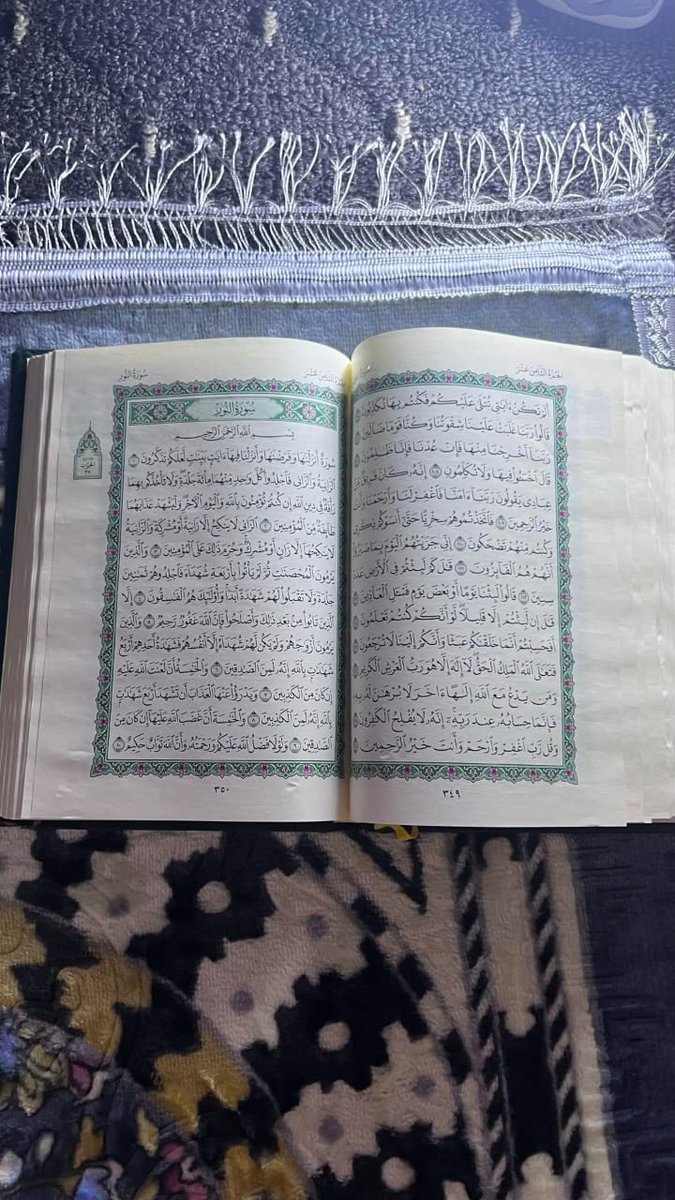 الجزء الثامن عشر
أَلَمْ تَكُنْ ءَايَٰتِى تُتْلَىٰ عَلَيْكُمْ فَكُنتُم بِهَا تُكَذِّبُونَ
قَالُوا۟ رَبَّنَا غَلَبَتْ عَلَيْنَا شِقْوَتُنَا وَكُنَّا قَوْمًا ضَآلِّينَ
رَبَّنَآ أَخْرِجْنَا مِنْهَا فَإِنْ عُدْنَا فَإِنَّا ظَٰلِمُونَ
قَالَ ٱخْسَـُٔوا۟ فِيهَا وَلَا تُكَلِّمُونِ ١٠٨ إِنَّهُۥ كَانَ فَرِيقٌ
عِبَادِى يَقُولُونَ رَبَّنَآ ءَامَنَّا فَٱغْفِرْ لَنَا وَٱرْحَمْنَا وَأَنتَ
خَيْرُ ٱلرَّٰحِمِينَ ١٠٩ فَٱتَّخَذْتُمُوهُمْ سِخْرِيًّا حَتَّىٰٓ أَنسَوْكُمْ ذِكْرِى
وَكُنتُم مِّنْهُمْ تَضْحَكُونَ ١١٠ إِنِّى جَزَيْتُهُمُ ٱلْيَوْمَ بِمَا صَبَرُوٓا۟
أَنَّهُمْ هُمُ ٱلْفَآئِزُونَ ١١١ قَٰلَ كَمْ لَبِثْتُمْ فِى ٱلْأَرْضِ عَدَدَ
سِنِينَ ١١٢ قَالُوا۟ لَبِثْنَا يَوْمًا أَوْ بَعْضَ يَوْمٍ فَسْـَٔلِ ٱلْعَآدِّينَ ١١٣
قَٰلَ إِن لَّبِثْتُمْ إِلَّا قَلِيلًا لَّوْ أَنَّكُمْ كُنتُمْ تَعْلَمُونَ ١١٤
أَفَحَسِبْتُمْ أَنَّمَا خَلَقْنَٰكُمْ عَبَثًا وَأَنَّكُمْ إِلَيْنَا لَا تُرْجَعُونَ ١١٥
فَتَعَٰلَى ٱللَّهُ ٱلْمَلِكُ ٱلْحَقُّ لَآ إِلَٰهَ إِلَّا هُوَ رَبُّ ٱلْعَرْشِ ٱلْكَرِيمِ ١١٦
وَمَن يَدْعُ مَعَ ٱللَّهِ إِلَٰهًا ءَاخَرَ لَا بُرْهَٰنَ لَهُۥ بِهِۦ
فَإِنَّمَا حِسَابُهُۥ عِندَ رَبِّهِۦٓ إِنَّهُۥ لَا يُفْلِحُ ٱلْكَٰفِرُونَ ١١٧
وَقُل رَّبِّ ٱغْفِرْ وَٱرْحَمْ وَأَنتَ خَيْرُ ٱلرَّٰحِمِينَ ١١٨
٣٤٩
الجزء الثامن عشر
سورة النور
سُورَةُ النُّورِ
بِسْمِ ٱللَّهِ ٱلرَّحْمَٰنِ ٱلرَّحِيمِ
سُورَةٌ أَنزَلْنَٰهَا وَفَرَضْنَٰهَا وَأَنزَلْنَا فِيهَآ ءَايَٰتٍۭ بَيِّنَٰتٍ لَّعَلَّكُمْ تَذَكَّرُونَ ١
ٱلزَّانِيَةُ وَٱلزَّانِى فَٱجْلِدُوا۟ كُلَّ وَٰحِدٍ مِّنْهُمَا مِا۟ئَةَ جَلْدَةٍ وَلَا تَأْخُذْكُم بِهِمَا
رَأْفَةٌ فِى دِينِ ٱللَّهِ إِن كُنتُمْ تُؤْمِنُونَ بِٱللَّهِ وَٱلْيَوْمِ ٱلْءَاخِرِ وَلْيَشْهَدْ عَذَابَهُمَا
طَآئِفَةٌ مِّنَ ٱلْمُؤْمِنِينَ ٢ ٱلزَّانِى لَا يَنكِحُ إِلَّا زَانِيَةً أَوْ مُشْرِكَةً وَٱلزَّانِيَةُ
لَا يَنكِحُهَآ إِلَّا زَانٍ أَوْ مُشْرِكٌ وَحُرِّمَ ذَٰلِكَ عَلَى ٱلْمُؤْمِنِينَ ٣ وَٱلَّذِينَ
يَرْمُونَ ٱلْمُحْصَنَٰتِ ثُمَّ لَمْ يَأْتُوا۟ بِأَرْبَعَةِ شُهَدَآءَ فَٱجْلِدُوهُمْ ثَمَٰنِينَ
جَلْدَةً وَلَا تَقْبَلُوا۟ لَهُمْ شَهَٰدَةً أَبَدًا وَأُو۟لَٰٓئِكَ هُمُ ٱلْفَٰسِقُونَ ٤ إِلَّا
ٱلَّذِينَ تَابُوا۟ مِنۢ بَعْدِ ذَٰلِكَ وَأَصْلَحُوا۟ فَإِنَّ ٱللَّهَ غَفُورٌ رَّحِيمٌ ٥ وَٱلَّذِينَ
يَرْمُونَ أَزْوَٰجَهُمْ وَلَمْ يَكُن لَّهُمْ شُهَدَآءُ إِلَّآ أَنفُسُهُمْ فَشَهَٰدَةُ أَحَدِهِمْ أَرْبَعُ
شَهَٰدَٰتٍۭ بِٱللَّهِ إِنَّهُۥ لَمِنَ ٱلصَّٰدِقِينَ ٦ وَٱلْخَٰمِسَةُ أَنَّ لَعْنَتَ ٱللَّهِ عَلَيْهِ
إِن كَانَ مِنَ ٱلْكَٰذِبِينَ ٧ وَيَدْرَؤُا۟ عَنْهَا ٱلْعَذَابَ أَن تَشْهَدَ أَرْبَعَ شَهَٰدَٰتٍۭ
بِٱللَّهِ إِنَّهُۥ لَمِنَ ٱلْكَٰذِبِينَ ٨ وَٱلْخَٰمِسَةَ أَنَّ غَضَبَ ٱللَّهِ عَلَيْهَآ إِن كَانَ مِنَ
ٱلصَّٰدِقِينَ ٩ وَلَوْلَا فَضْلُ ٱللَّهِ عَلَيْكُمْ وَرَحْمَتُهُۥ وَأَنَّ ٱللَّهَ تَوَّابٌ حَكِيمٌ ١٠
٣٥٠